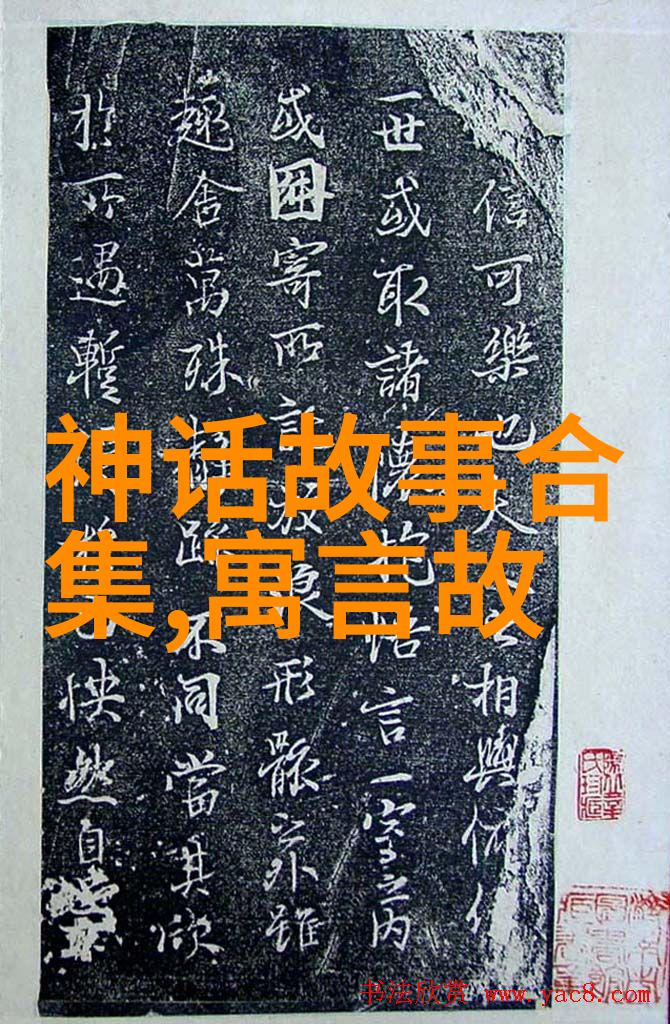 神话故事合
集,寓言故
信可樂也夫之相與俯仰
一世或取諸懷抱悟言一室之內
或因寄所託放浪形骸之外雖
趣舍萬殊靜躁不同當其欣
於所遇暫得於己快然自
书法欣赏 www.yac8.com